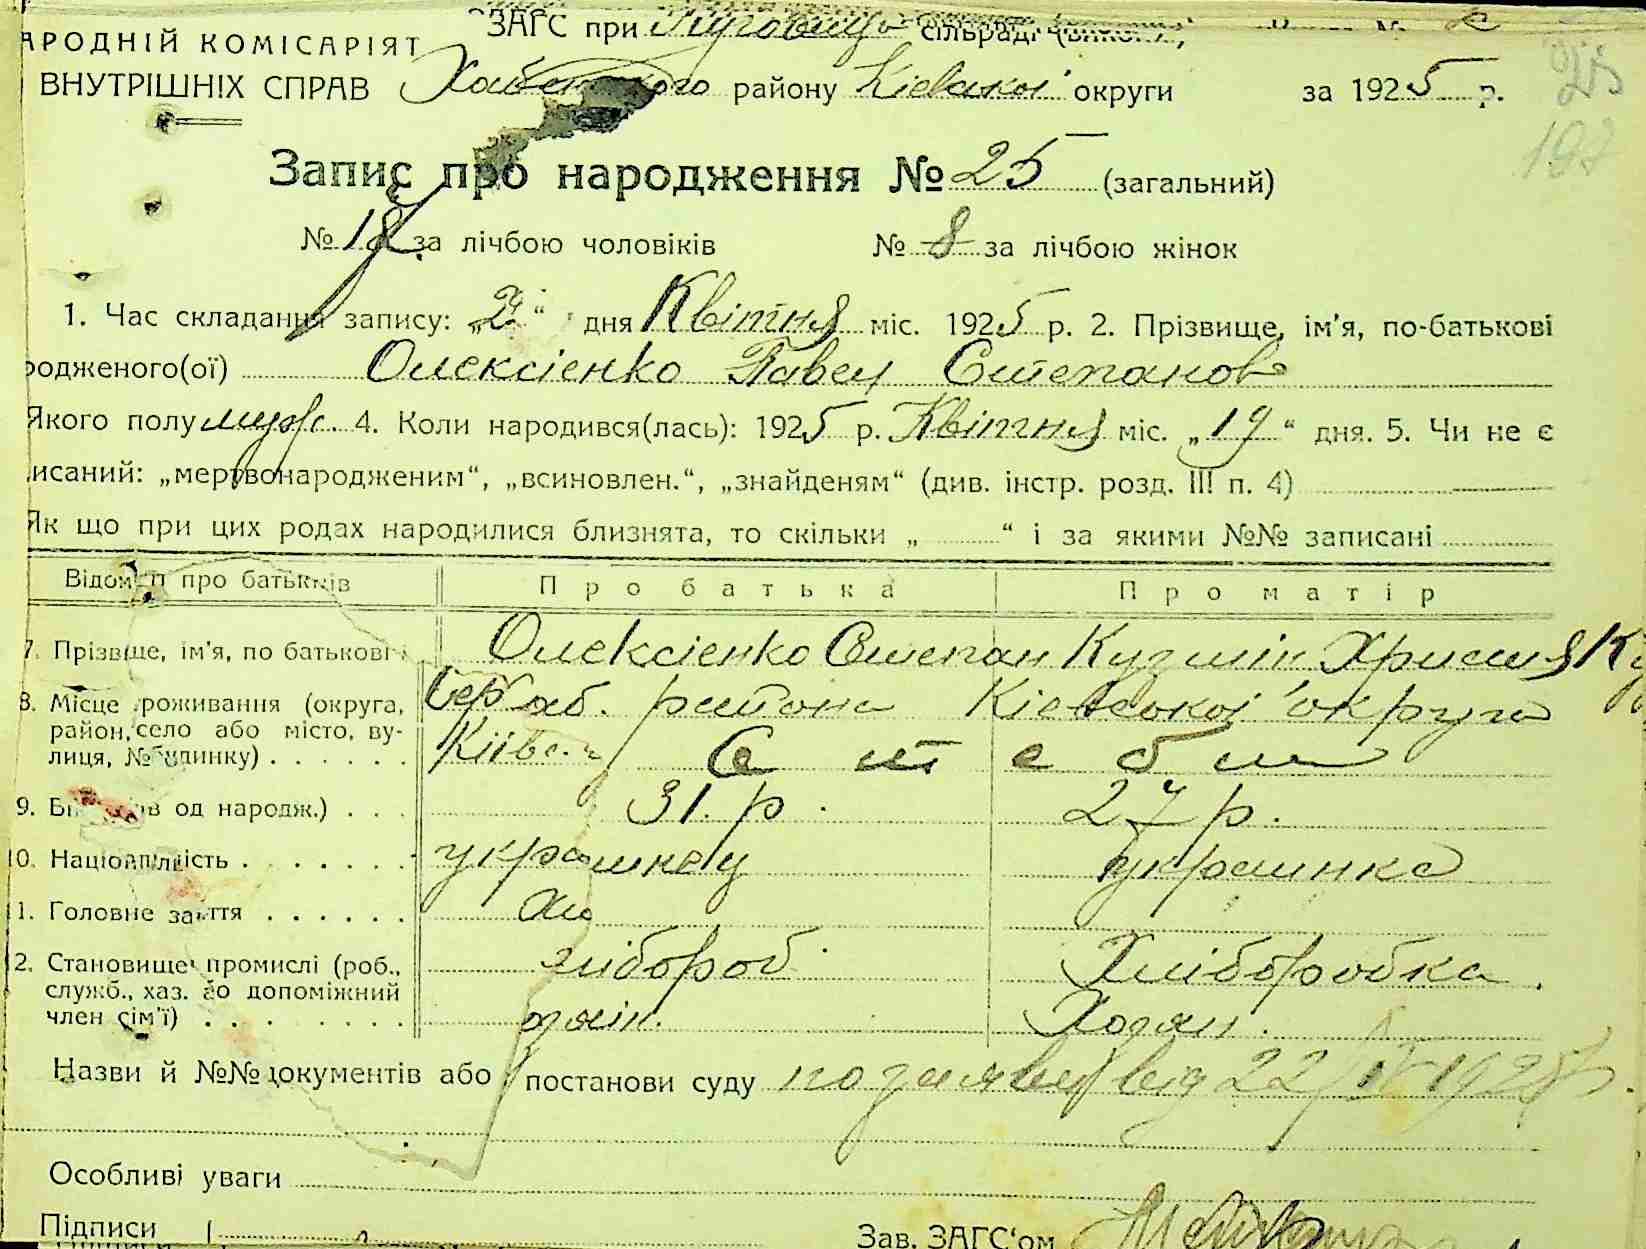 ЗАГС при сільраді
АРОДНІЙ КОМІСАРІЯТ
ВНУТРІШНІХ СПРАВ району Київської округи за 1925 р.
25
197
Запис про народження № 25 (загальний)
№ 18 за лічбою чоловіків № 8 за лічбою жінок
1. Час складання запису: „2 “ дня Квітня міс. 1925 р. 2. Прізвище, ім'я, по-батькові
родженого(ої) Олексієнко Павел Степанов
Якого полу мужс. 4. Коли народився(лась): 1925 р. Квітня міс. „19“ дня. 5. Чи не є
исаний: „мертвонародженим“, „всиновлен.“, „знайденям“ (див. інстр. розд. III п. 4)
Як що при цих родах народилися близнята, то скільки „ “ і за якими №№ записані
Відомости про батьків Про батька Про матір
7. Прізвище, ім'я, по батькові Олексієнко Степан Кузмін Христия
8. Місце проживання (округа, района Київської округи
район, село або місто, ву-
лиця, № будинку) . . . . . .
9. од народж.) . . . 31. р. 27 р.
10. Національність . . . . . . . украинец украинка
11. Головне заняття . . . . . .
12. Становище промислі (роб., хлібороб Хліборобка
служб., хаз. або допоміжний
член сім'ї) . . . . . . . Хозяи.
Назви й №№ документів або постанови суду по заявеї від 22/IV 1925 р.
Особливі уваги
Підписи Зав. ЗАГС'ом